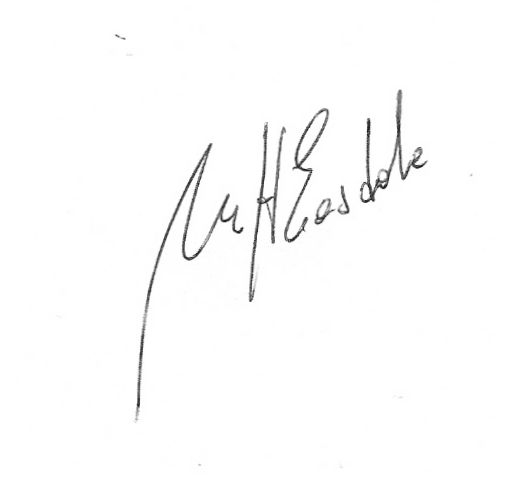 M H Easdale